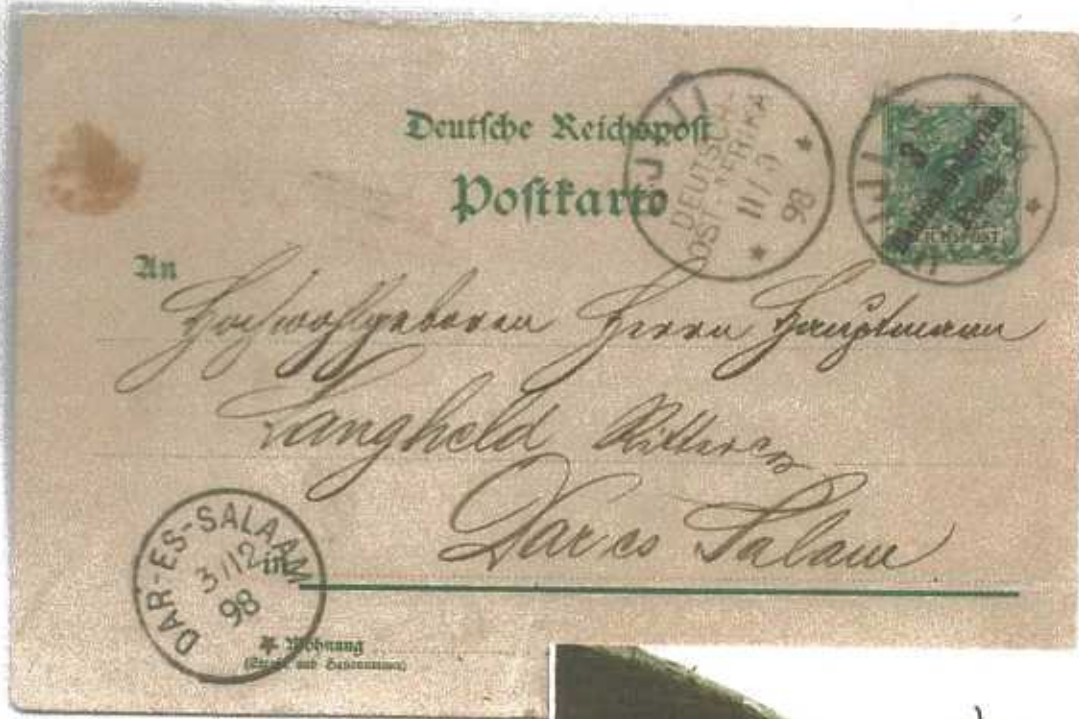 Deutsche Reichspost
Postkarte
UJIJI
DEUTSCH-
OST-AFRIKA
98
3
REICHSPOST
An
Hochwohlgeboren Herrn Hauptmann
Langheld Ritter
Dar es Salam
in
DAR-ES-SALAAM
3/12
98
Wohnung
(Straße und Hausnummer)